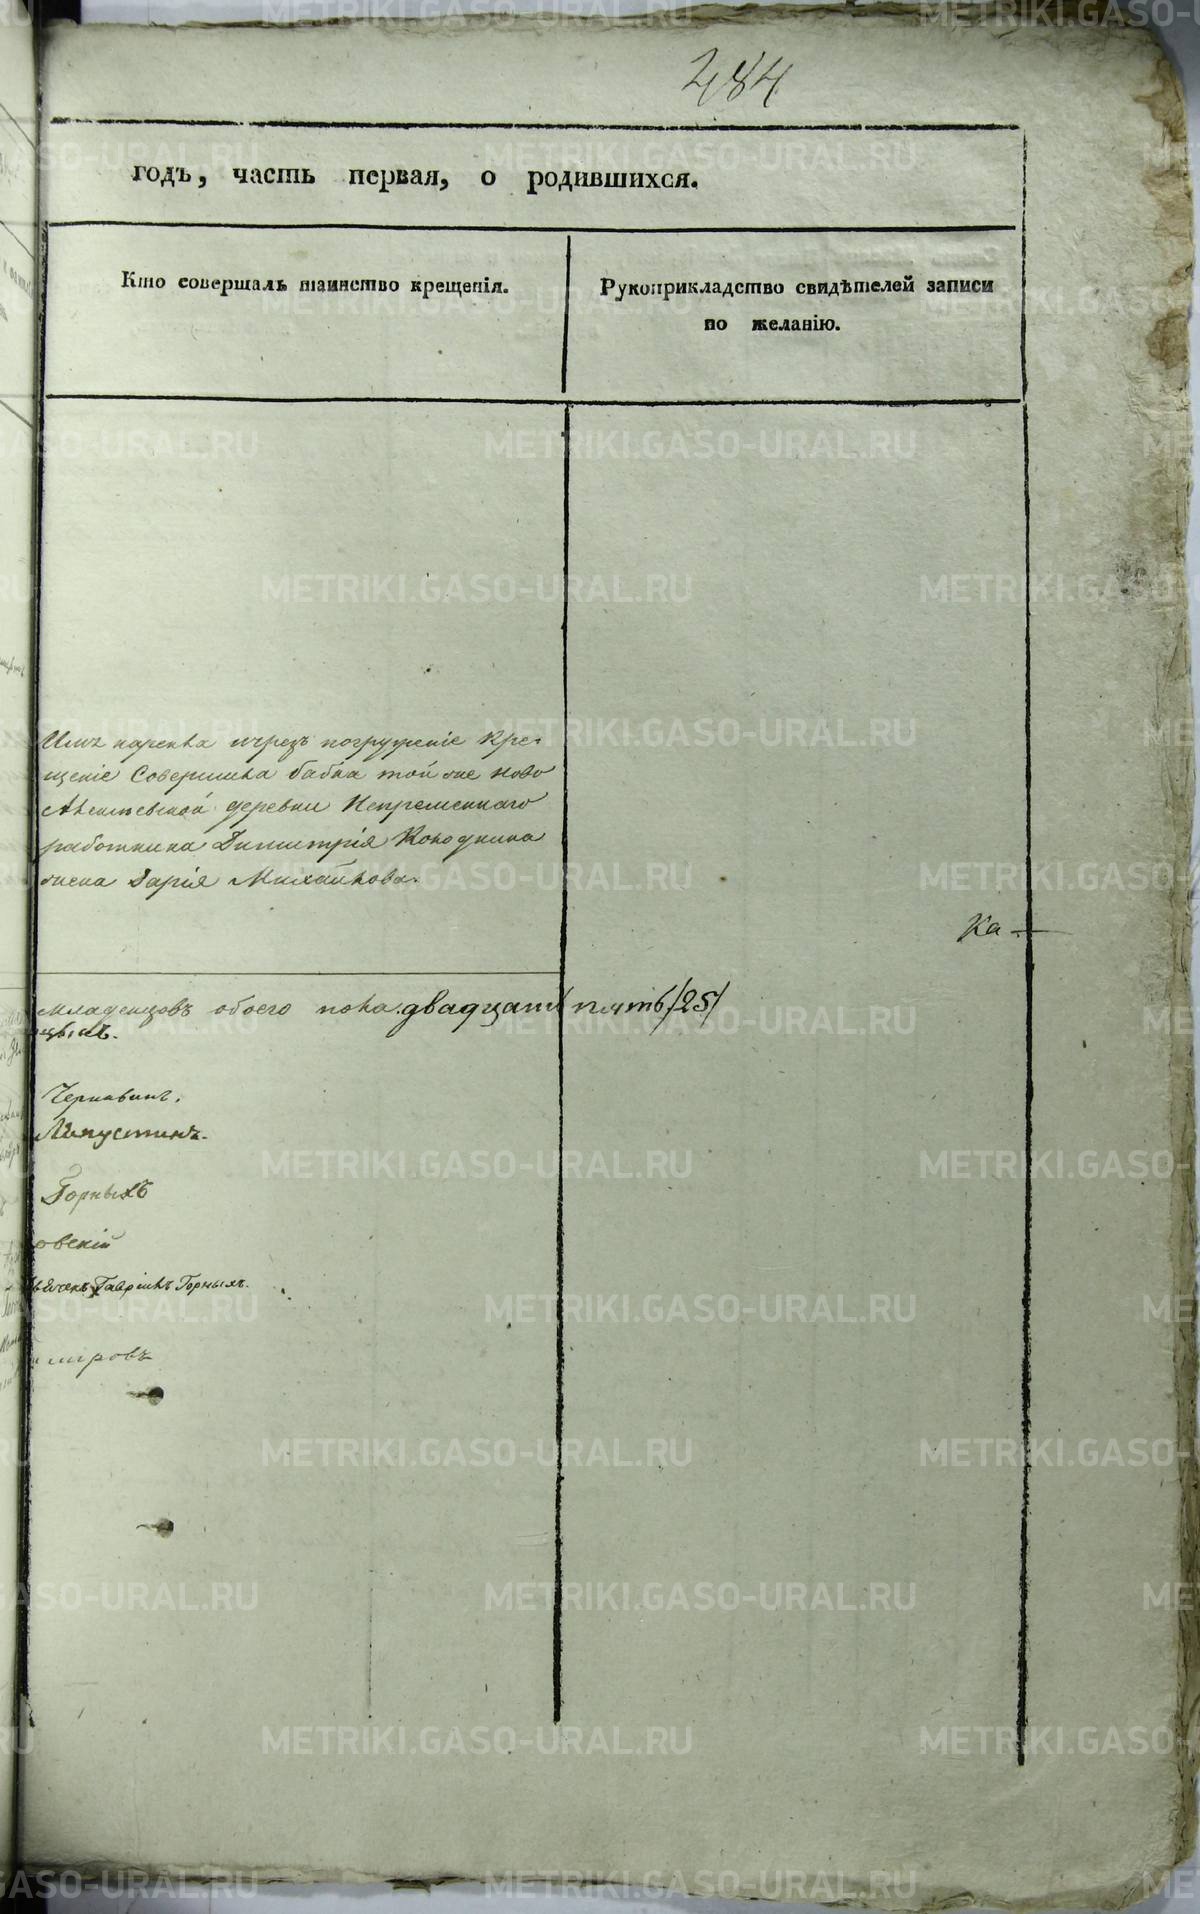 284
годъ, часть первая, о родившихся.
Кто совершалъ таинство крещенія.
Рукоприкладство свидѣтелей записи
по желанію.
нарекла чрезъ погруженіе кре-
щеніе Совершила бабка той же ново
деревни Непременнаго
работника Димитрія
жена Дарія Михайлова.
Ка-
младенцовъ обоего пола двадцать пять /25/
Чернавинъ.
Горныхъ
овскій
Гавріилъ Горныхъ.
мировъ
METRIKI.GASO-URAL.RU